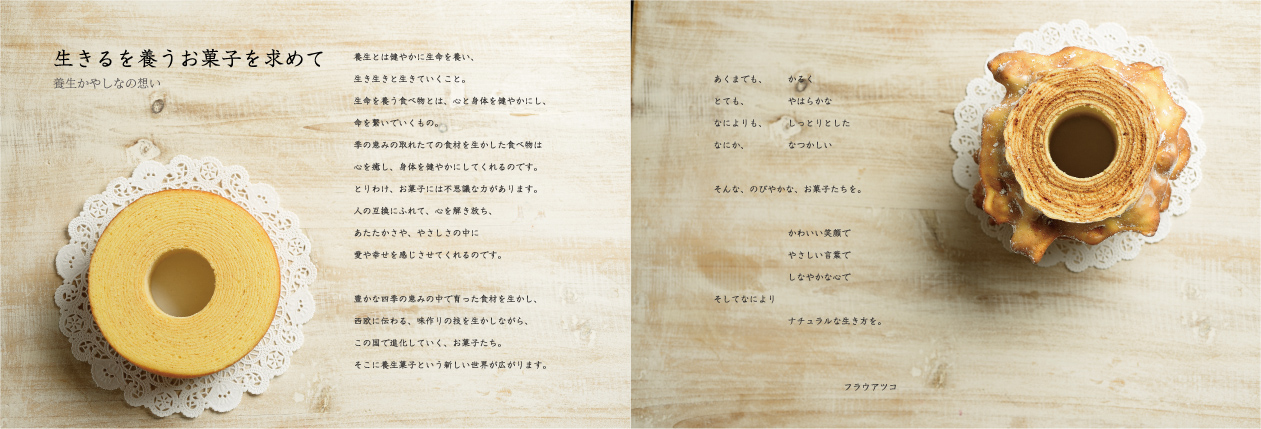 生きるを養うお菓子を求めて
養生かやしなの想い
養生とは健やかに生命を養い、
生き生きと生きていくこと。
生命を養う食べ物とは、心と身体を健やかにし、
命を繋いでいくもの。
季の恵みの取れたての食材を生かした食べ物は
心を癒し、身体を健やかにしてくれるのです。
とりわけ、お菓子には不思議な力があります。
人の互換にふれて、心を解き放ち、
あたたかさや、やさしさの中に
愛や幸せを感じさせてくれるのです。
豊かな四季の恵みの中で育った食材を生かし、
西欧に伝わる、味作りの技を生かしながら、
この国で進化していく、お菓子たち。
そこに養生菓子という新しい世界が広がります。
あくまでも、 かるく
とても、 やはらかな
なによりも、 しっとりとした
なにか、 なつかしい
そんな、のびやかな、お菓子たちを。
かわいい笑顔で
やさしい言葉で
しなやかな心で
そしてなにより
ナチュラルな生き方を。
フラウアツコ